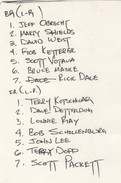 BR (L-R)
1. JEFF OBRECHT
2. MARTY SHIELDS
3. DAVID WEST
4. ROB KETTERER
5. SCOTT VOTAVA
6. BRUCE MAISKE
7. DALE RICE DALE
FR (L-R)
1. TERRY KOTSCHWAR
2. DAVE DETTERDING
3. LONNIE RIAY
4. BOB SCHOLLENBURG
5. JOHN LEE
6. TERRY DODD
7. SCOTT PACKETT